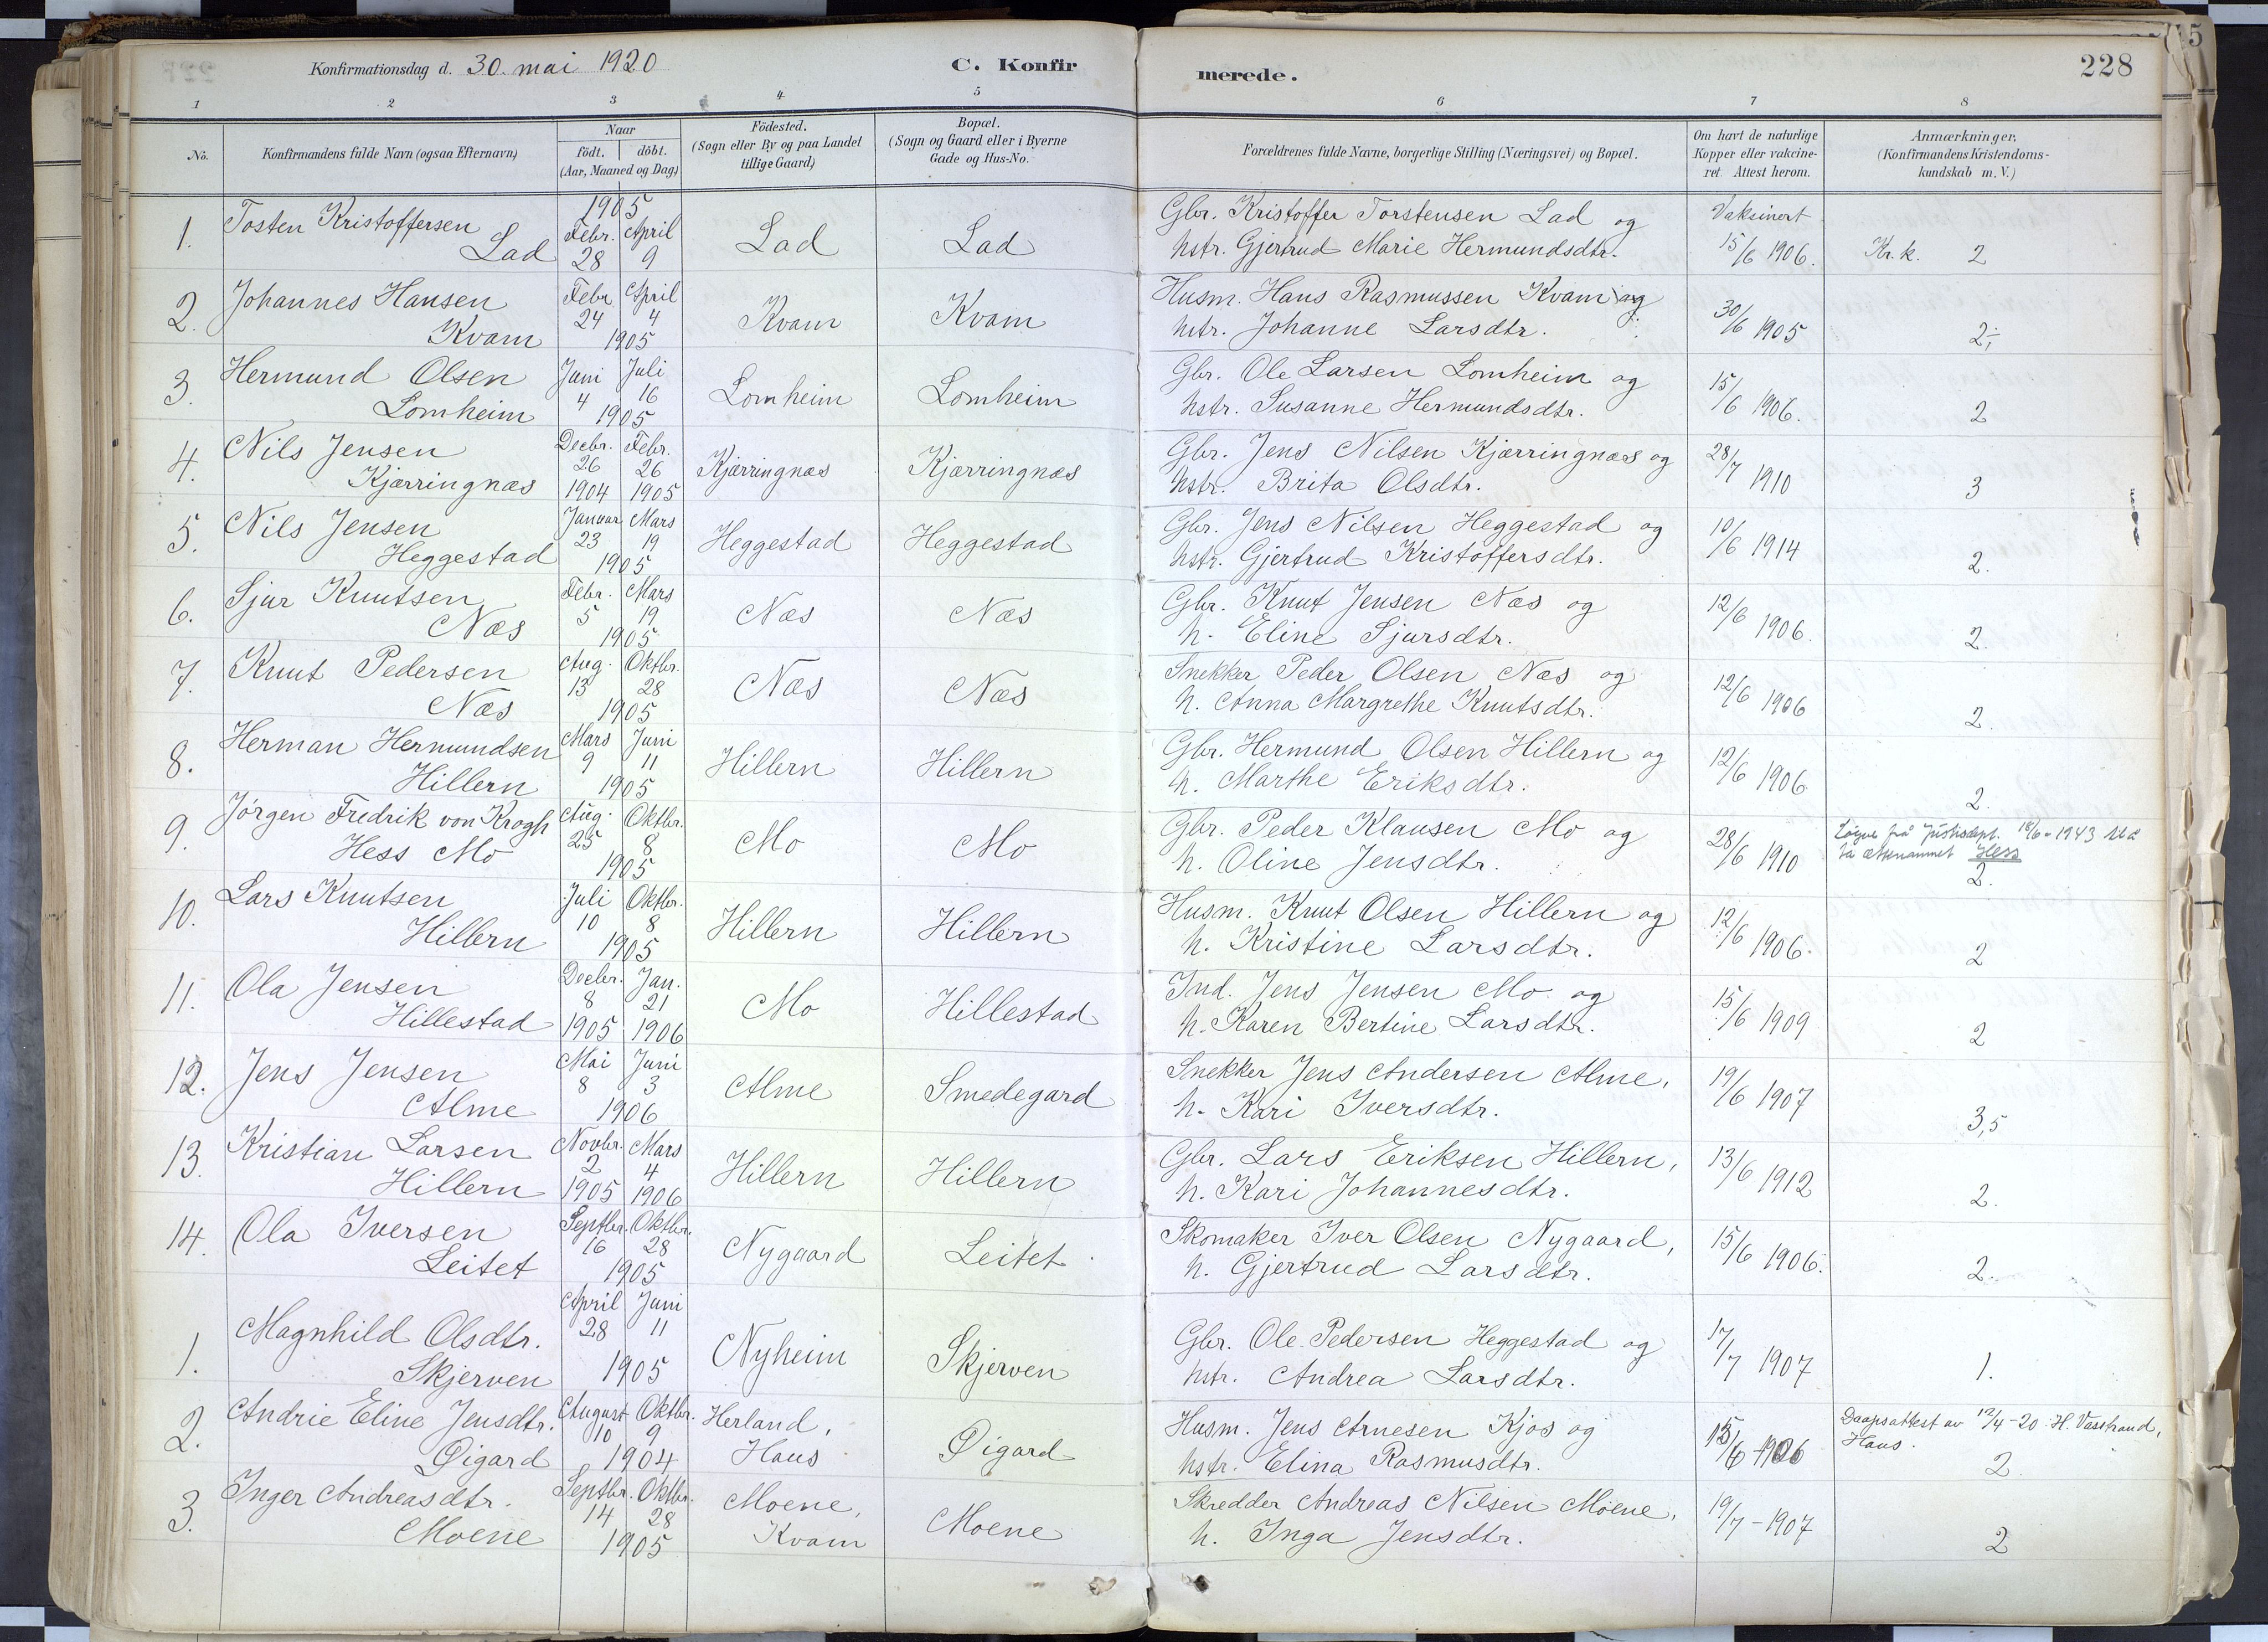 Konfirmationsdag d. 30. mai 1920 C. Konfirmerede. 228
1 2 3 4 5 6 7 8
No. Konfirmandens fulde Navn (ogsaa Efternavn) Naar født. døbt. (Aar, Maaned og Dag) Fødested. (Sogn eller By og paa Landet tillige Gaard) Bopæl. (Sogn og Gaard eller i Byerne Gade og Hus-No. Forældrenes fulde Navne, borgerlige Stilling (Næringsvei) og Bopæl. Om havt de naturlige Kopper eller vakcineret. Attest herom. Anmærkninger. (Konfirmandens Kristendomskundskab m. V.)
1905
1. Tosten Kristoffersen Febr. April Lad Lad Gbr. Kristoffer Torstensen Lad og Vaksinert
Lad 28 9 hstr. Gjertrud Marie Hermundsdtr. 15/6 1906. Kr. k. 2
2. Johannes Hansen Febr April Kvam Kvam Husm. Hans Rasmussen Kvam og 30/6 1905
Kvam 24 4 1905 hstr. Johanne Larsdtr. 2÷
3. Hermund Olsen Juni Juli Lomheim Lomheim Gbr. Ole Larsen Lomheim og 15/6 1906.
Lomheim 4 16 1905 hstr. Susanne Hermundsdtr. 2
4. Nils Jensen Decbr. Febr. Kjærringnæs Kjærringnæs Gbr. Jens Nilsen Kjærringnæs og 28/7 1910
Kjærringnæs 26 26 1904 1905 hstr. Brita Olsdtr. 3
5. Nils Jensen Januar Mars Heggestad Heggestad Gbr. Jens Nilsen Heggestad og 10/6 1914
Heggestad 23 19 1905 hstr. Gjertrud Kristoffersdtr. 2.
6. Sjur Knutsen Febr. Mars Næs Næs Gbr. Knut Jensen Næs og 12/6 1906.
Næs 5 19 1905 h. Eline Sjursdtr. 2.
7. Knut Pedersen Aug. Oktbr. Næs Næs Snekker Peder Olsen Næs og 12/6 1906
Næs 13 28 1905 h. Anna Margrethe Knutsdtr. 2.
8. Herman Hermundsen Mars Juni Hillern Hillern Gbr. Hermund Olsen Hillern og 12/6 1906.
Hillern 9 11 1905 h. Marthe Eriksdtr. 2.
9. Jørgen Fredrik von Krogh Aug. Oktbr. Mo Mo Gbr. Peder Klausen Mo og 28/6 1910 Løyve frå Justisdept. 18/6-1943 til å
Hess Mo 25 8 1905 h. Oline Jensdtr. ta ættenamnet Hess
2.
10. Lars Knutsen Juli Oktbr. Hillern Hillern Husm. Knut Olsen Hillern og 12/6 1906.
Hillern 10 8 1905 h. Kristine Larsdtr. 2
11. Ola Jensen Decbr. Jan. Mo Hillestad Ind. Jens Jensen Mo og 15/6 1909
Hillestad 8 21 1905 1906 h. Karen Bertine Larsdtr. 2
12. Jens Jensen Mai Juni Alme Smedegard Snekker Jens Andersen Alme, 19/6 1907
Alme 8 3 1906 h. Kari Iversdtr. 3,5
13. Kristian Larsen Novbr. Mars Hillern Hillern Gbr. Lars Eriksen Hillern, 13/6 1912
Hillern 2 4 1905 1906 h. Kari Johannesdtr. 2.
14. Ola Iversen Septbr. Oktbr. Nygaard Leitet Skomaker Iver Olsen Nygaard, 15/6 1906.
Leitet 16 28 1905 h. Gjertrud Larsdtr. 2.
1. Magnhild Olsdtr. April Juni Nyheim Skjerven Gbr. Ole Pedersen Heggestad og 17/7 1907
Skjerven 28 11 1905 hstr. Andrea Larsdtr. 1.
2. Andrie Eline Jensdtr. August Oktbr. Herland, Øigard Husm. Jens Arnesen Kjos og 15/6-1906 Daapsattest av 12/4-20 H. Vasstrand,
Øigard 10 9 1904 Haus hstr. Elina Rasmusdtr. Haus. 2
3. Inger Andreasdtr. Septbr. Oktbr. Moene, Moene Skredder Andreas Nilsen Moene, 19/7-1907
Moene 14 28 1905 Kvam h. Inga Jensdtr. 2